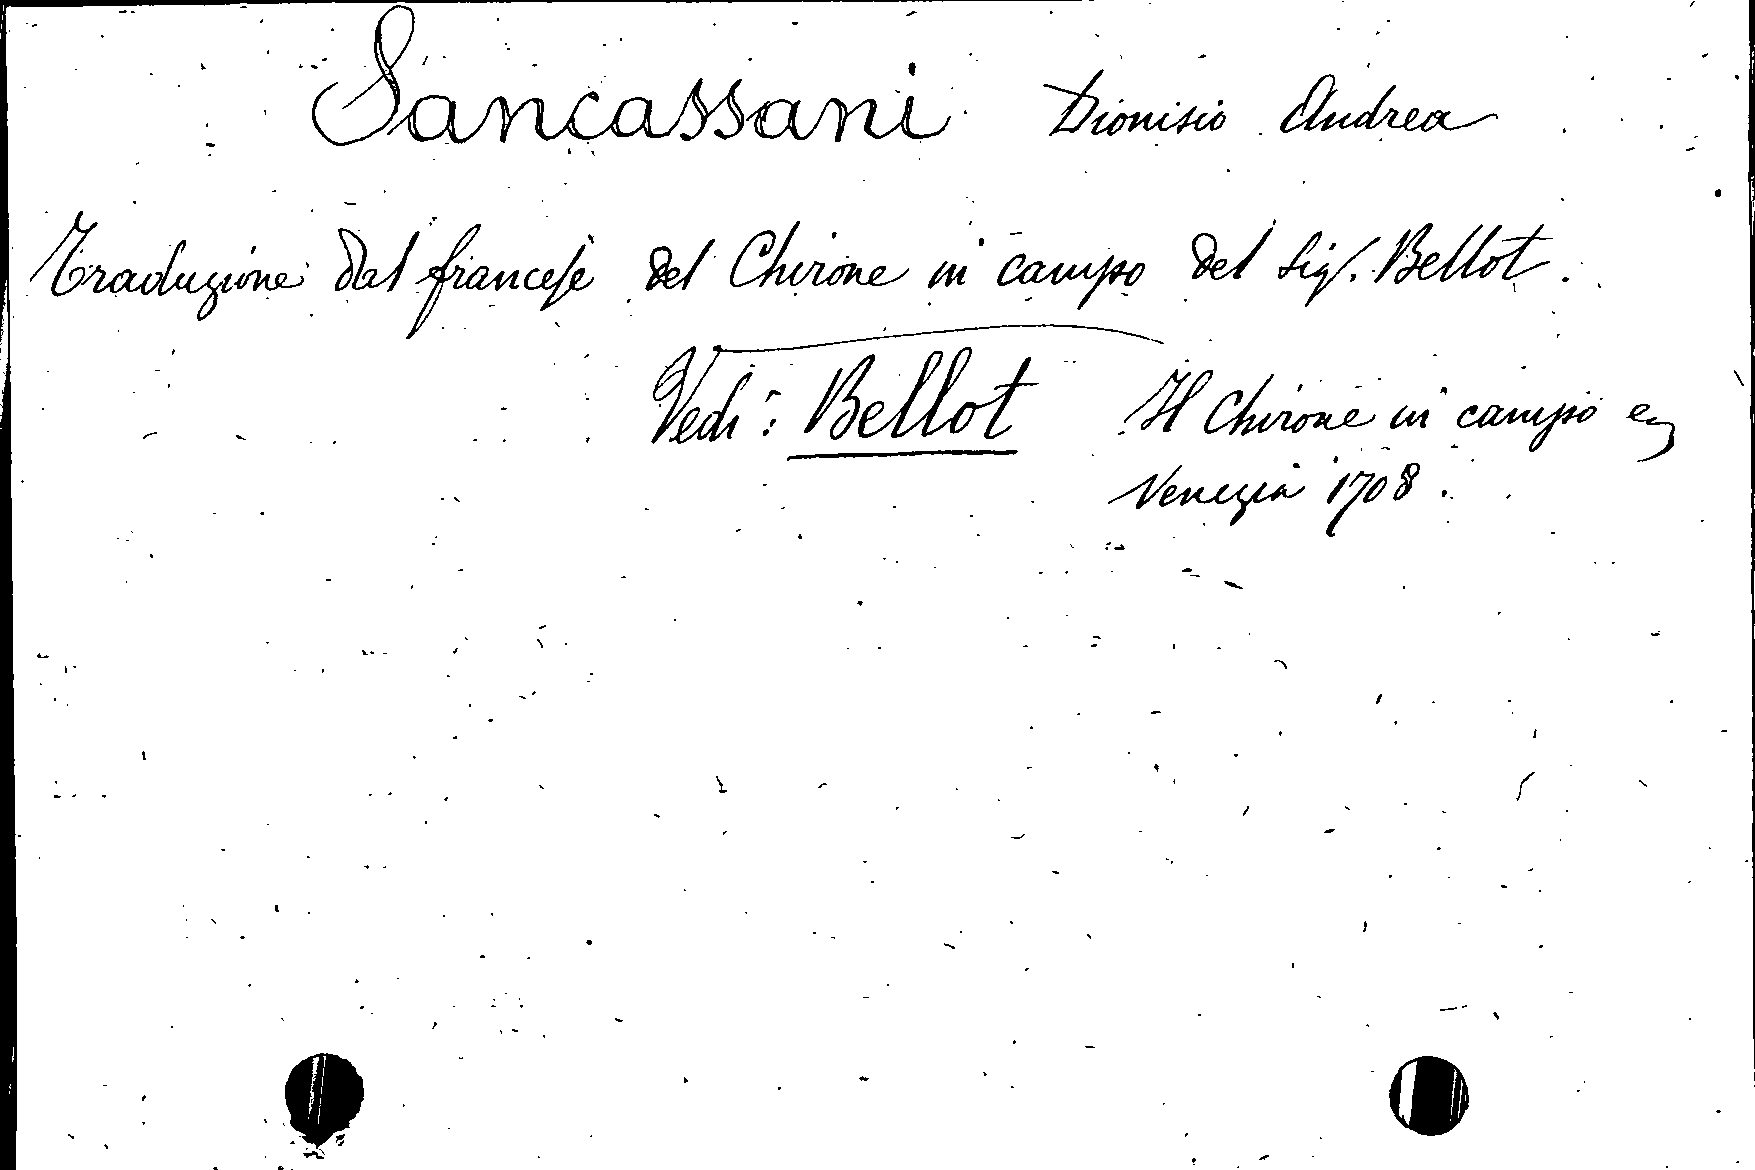 Sancassani Dionisio Andrea
Traduzione dal francese del Chirone in campo del Sig. Bellot.
Vedi: Bellot Il Chirone in campo
Venezia 1708.